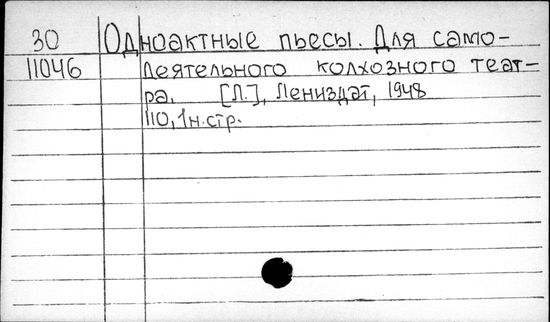 30 Одноактные пьесы. Для само-
11046 деятельного колхозного теат-
ра. [Л.], Лениздат, 1948
110, 1 н. стр.